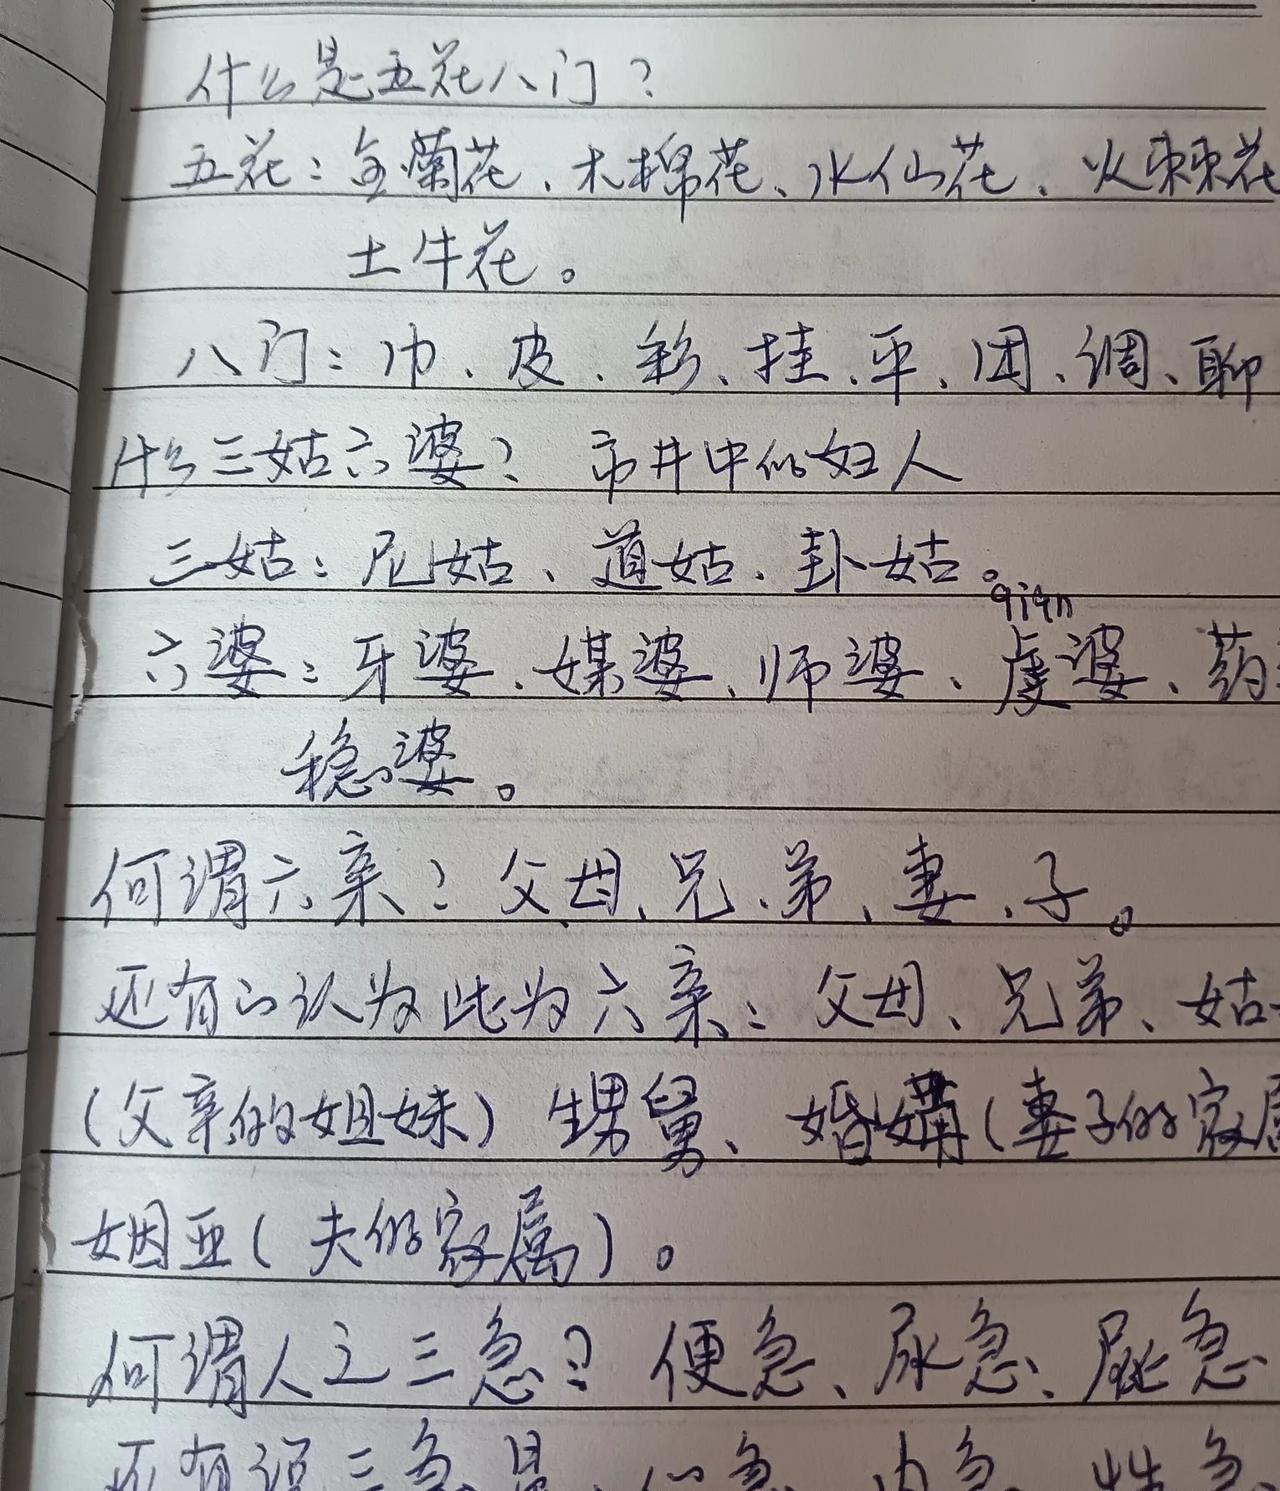 什么是五花八门？
五花：金蘭花、木棉花、水仙花、火棘花
土牛花。
八门：巾、皮、彩、挂、平、团、调、聊
什么三姑六婆？市井中的妇人
三姑：尼姑、道姑、卦姑。
qian
六婆：牙婆、媒婆、师婆、虔婆、药
稳婆。
何谓六亲？父、母、兄、弟、妻、子。
还有的认为此为六亲：父母、兄弟、姑
（父亲的姐妹）甥舅、婚媾（妻子的家属
姻亚（夫的家属）。
何谓人之三急？便急、尿急、屁急
还有说三急是：心急、内急、性急